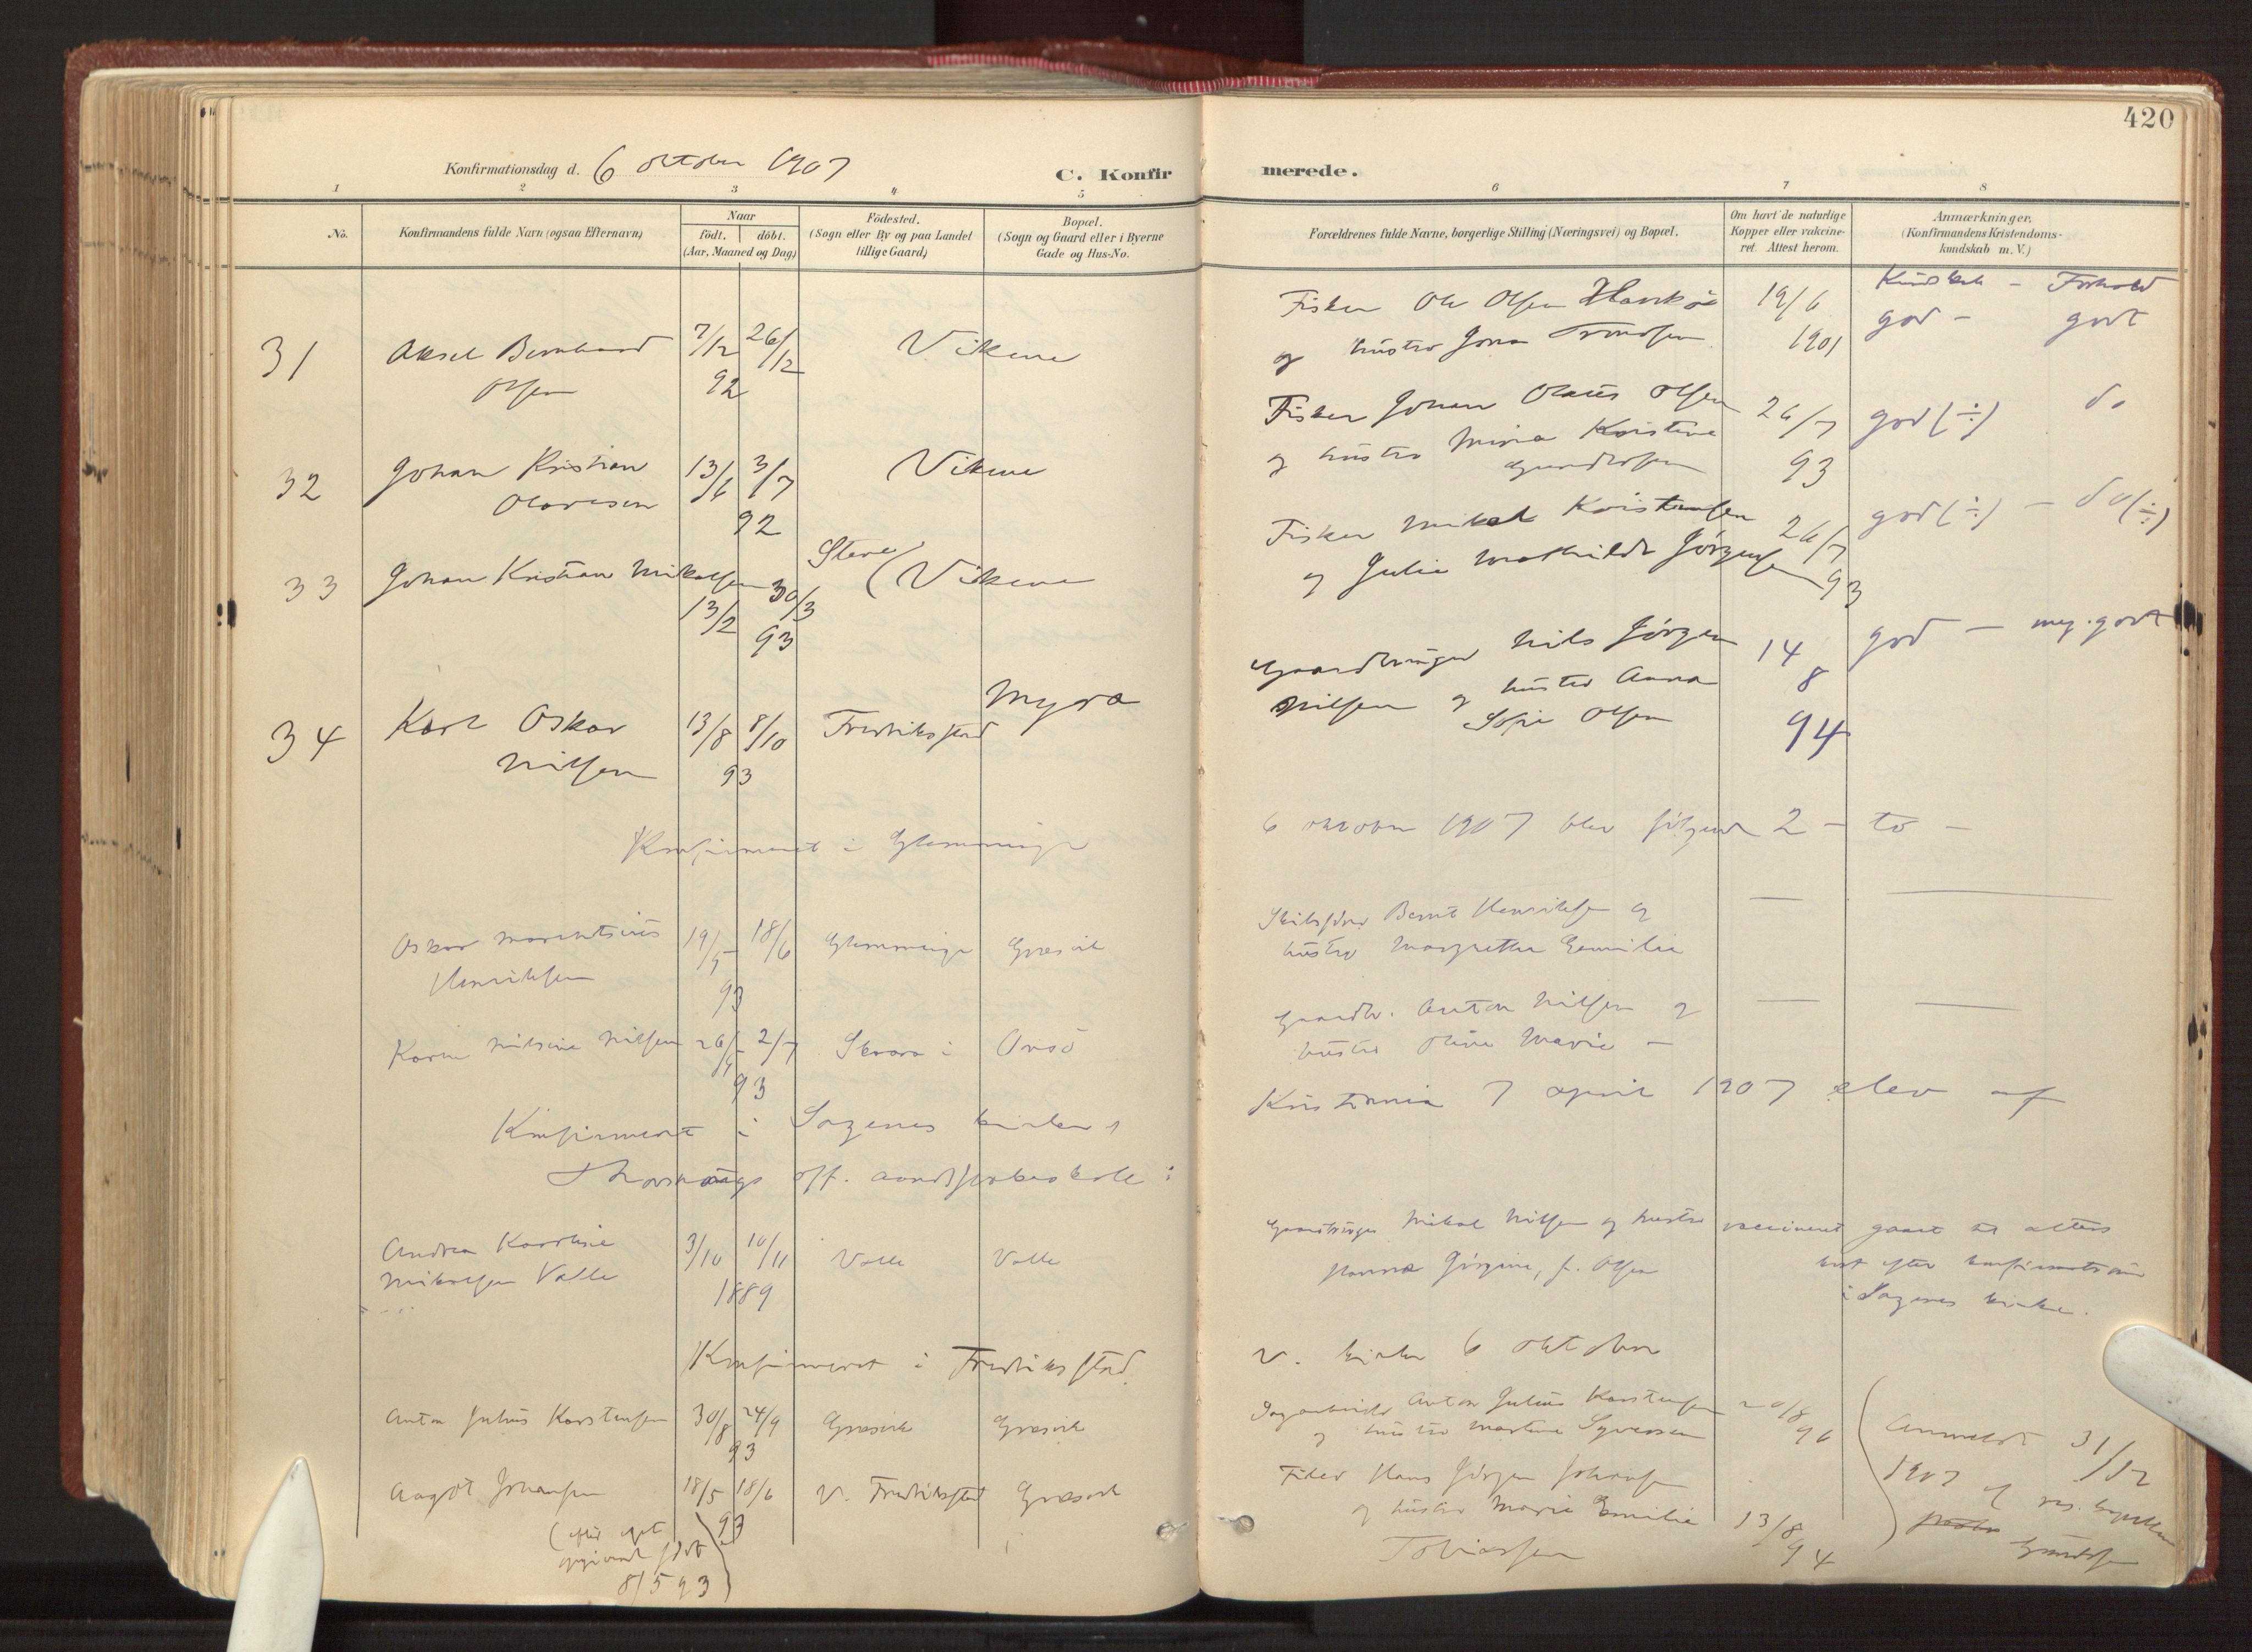 420
Konfirmationsdag d. 6 oktober 1907
C. Konfirmerede.
1 2 3 4 5 6 7 8
No.
Konfirmandens fulde Navn (ogsaa Efternavn)
Naar
født. døbt.
(Aar, Maaned og Dag)
Fødested.
(Sogn eller By og paa Landet
tillige Gaard)
Bopæl.
(Sogn og Gaard eller i Byerne
Gade og Hus-No.
Forældrenes fulde Navne, borgerlige Stilling (Næringsvei) og Bopæl.
Om havt de naturlige
Kopper eller vakcine-
ret. Attest herom.
Anmærkninger.
(Konfirmandens Kristendoms-
kundskab m. V.)
Kundskab - Forhold
31 Aksel Bernhard
Olsen
7/12 26/12
92
Vikene
Fisker Ole Olsen
og hustro
19/6
1901
god - godt
32 Johan Kristian
Olavesen
13/6 3/7
92
Vikene
Fisker Johan Olaus Olsen
og hustro Mina Kristine
26/7
93
god (÷) do
33 Johan Kristian Mikalsen
13/2 30/3
93
Stene (Vikene
Fisker Mikal Kristensen
og Julie Mathilde Jørgensen
26/7
93
god (÷) - do (÷)
34 Karl Oskar
Nilsen
13/8 8/10
93
Fredriksstad
Myra
Gaardbruger Nils Jørgen
Nilsen og hustro Anna
Sofie Olsen
14
8
94
god - meg. godt
Konfirmeret i Glemminge 6 oktober 1907 blev følgende 2 - to -
Oskar Marentsius
Henriksen
19/5 18/6
93
Glemminge
Græsvik
Skibsfører Bernt Henriksen og
hustro Margrethe Emilie
Karen Nilsine Nilsen
26/5 2/7
93
Skaara i Onsø
Gaardb. Anton Nilsen og
hustro Oline Marie -
Konfirmeret i Sagenes kirke, Kristiania 7 april 1907 elev af
off. aandssvageskole:
Andrea Karoline
Mikalsen Valle
3/10 10/11
1889
Valle
Valle
Gaardbruger Mikal Nilsen og hustro
Hanna Jørgine, f. Olsen
vaccineret
gaaet til alters
kort efter konfirmationen
i Sagenes kirke.
Konfirmeret i Fredriksstad
V. kirke 6 oktober
Anton Julius Karstensen
30/8 24/9
93
Græsvik
Græsvik
Anton Julius Karstensen
og hustro Martine Syversen
20/8
96
Anmeldt 31/12
1907 af res. kapellan
Aagot Johansen
18/5 18/6
93
(efter eget
opgivende født
8/5 93)
V. Fredriksstad
Græsvik
Hans Jørgen Johansen
og hustro Marie Emilie
Tobiassen
13/8
94